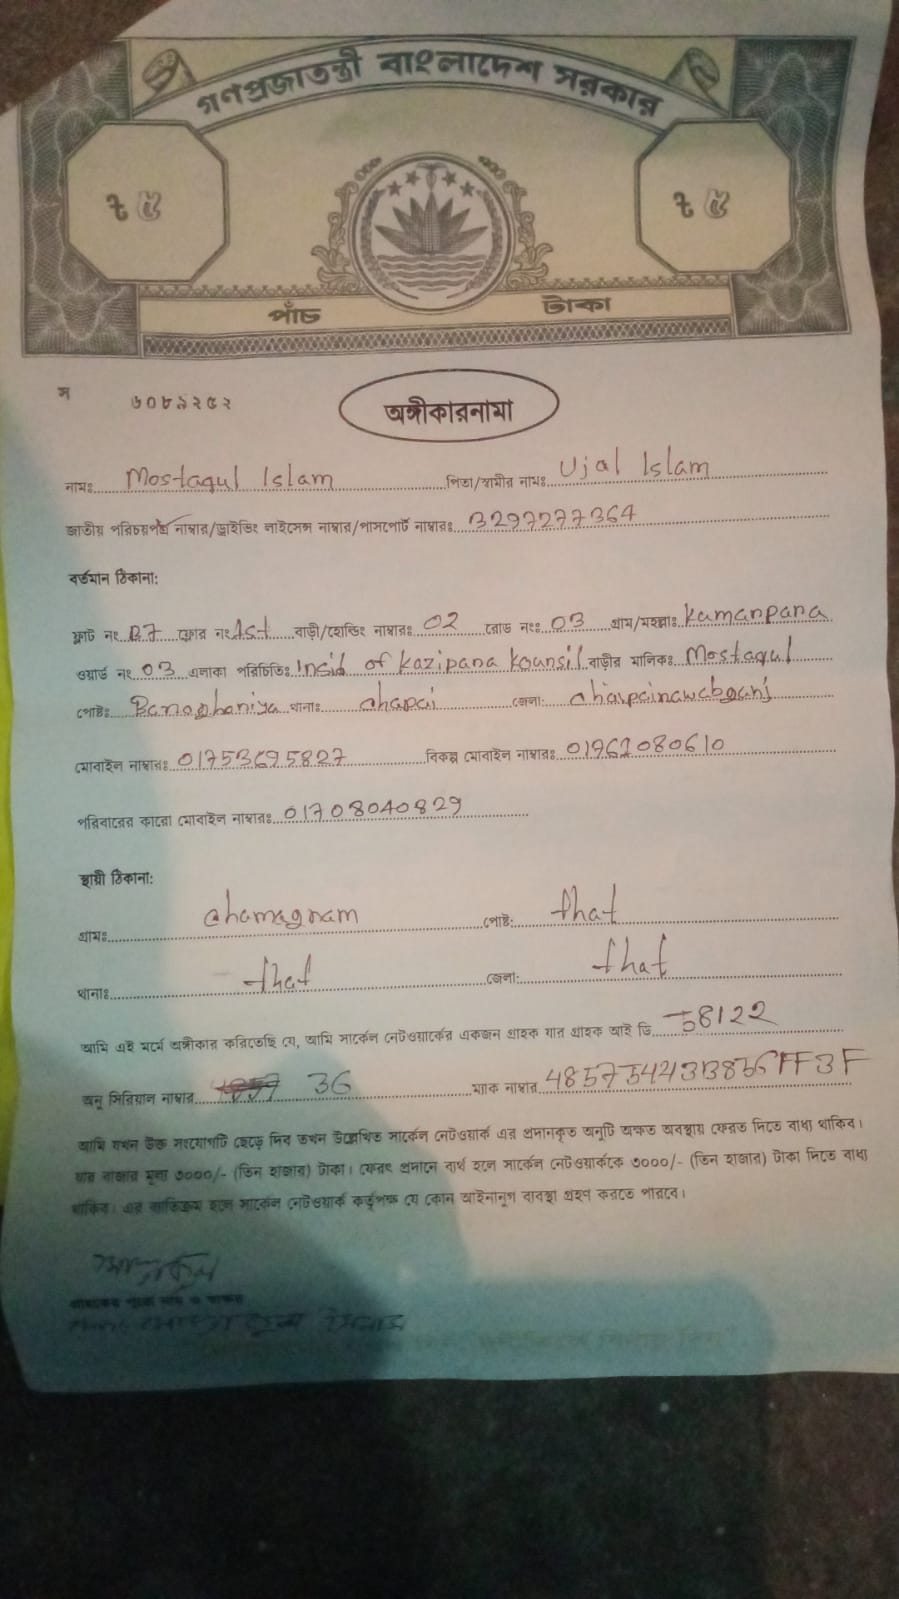 গণপ্রজাতন্ত্রী বাংলাদেশ সরকার
৳ ৫ ৳ ৫
পাঁচ টাকা
স ৬০৮৯২৫২
অঙ্গীকারনামা
নামঃ Mostaqul Islam পিতা/স্বামীর নামঃ Ujal Islam
জাতীয় পরিচয়পত্র নাম্বার/ড্রাইভিং লাইসেন্স নাম্বার/পাসপোর্ট নাম্বারঃ 3297277364
বর্তমান ঠিকানা:
ফ্লাট নং B7 ফ্লোর নং 1st বাড়ী/হোল্ডিং নাম্বারঃ 02 রোড নংঃ 03 গ্রাম/মহল্লাঃ Kamanpana
ওয়ার্ড নং 03 এলাকা পরিচিতিঃ Incid of Kazipana Kounsil বাড়ীর মালিকঃ Mostaqul
পোষ্টঃ থানাঃ chapai জেলা:
মোবাইল নাম্বারঃ 01753695827 বিকল্প মোবাইল নাম্বারঃ 01962080610
পরিবারের কারো মোবাইল নাম্বারঃ 01708040829
স্থায়ী ঠিকানা:
গ্রামঃ chamagnam পোষ্ট: that
থানাঃ that জেলা: that
আমি এই মর্মে অঙ্গীকার করিতেছি যে, আমি সার্কেল নেটওয়ার্কের একজন গ্রাহক যার গ্রাহক আই ডি 58122
অনু সিরিয়াল নাম্বার 36 ম্যাক নাম্বার
আমি যখন উক্ত সংযোগটি ছেড়ে দিব তখন উল্লেখিত সার্কেল নেটওয়ার্ক এর প্রদানকৃত অনুটি অক্ষত অবস্থায় ফেরত দিতে বাধ্য থাকিব।
যার বাজার মূল্য ৩০০০/- (তিন হাজার) টাকা। ফেরৎ প্রদানে ব্যর্থ হলে সার্কেল নেটওয়ার্ককে ৩০০০/- (তিন হাজার) টাকা দিতে বাধ্য
থাকিব। এর ব্যতিক্রম হলে সার্কেল নেটওয়ার্ক কর্তৃপক্ষ যে কোন আইনানুগ ব্যবস্থা গ্রহণ করতে পারবে।